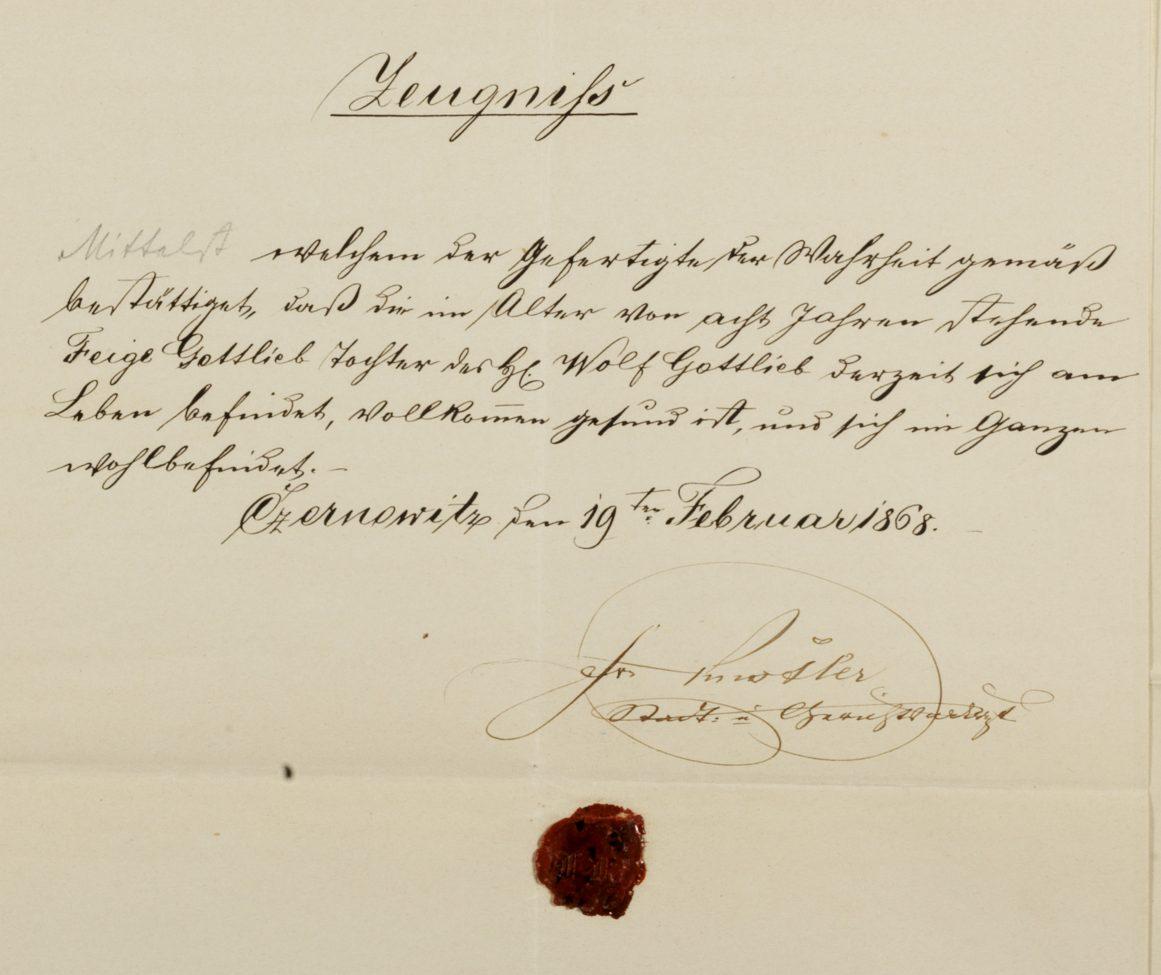 Zeugniss
Mittelst welchem der Gefertigte der Wahrheit gemäß
bestättiget, daß die im Alter von acht Jahren stehende
Feige Gottlieb Tochter des H. Wolf Gottlieb derzeit sich am
Leben befindet, vollkom̅en gesund ist, und sich im Ganzen
wohlbefindet. –
Czernowitz den 19ten Februar 1868. –
Stadt- u